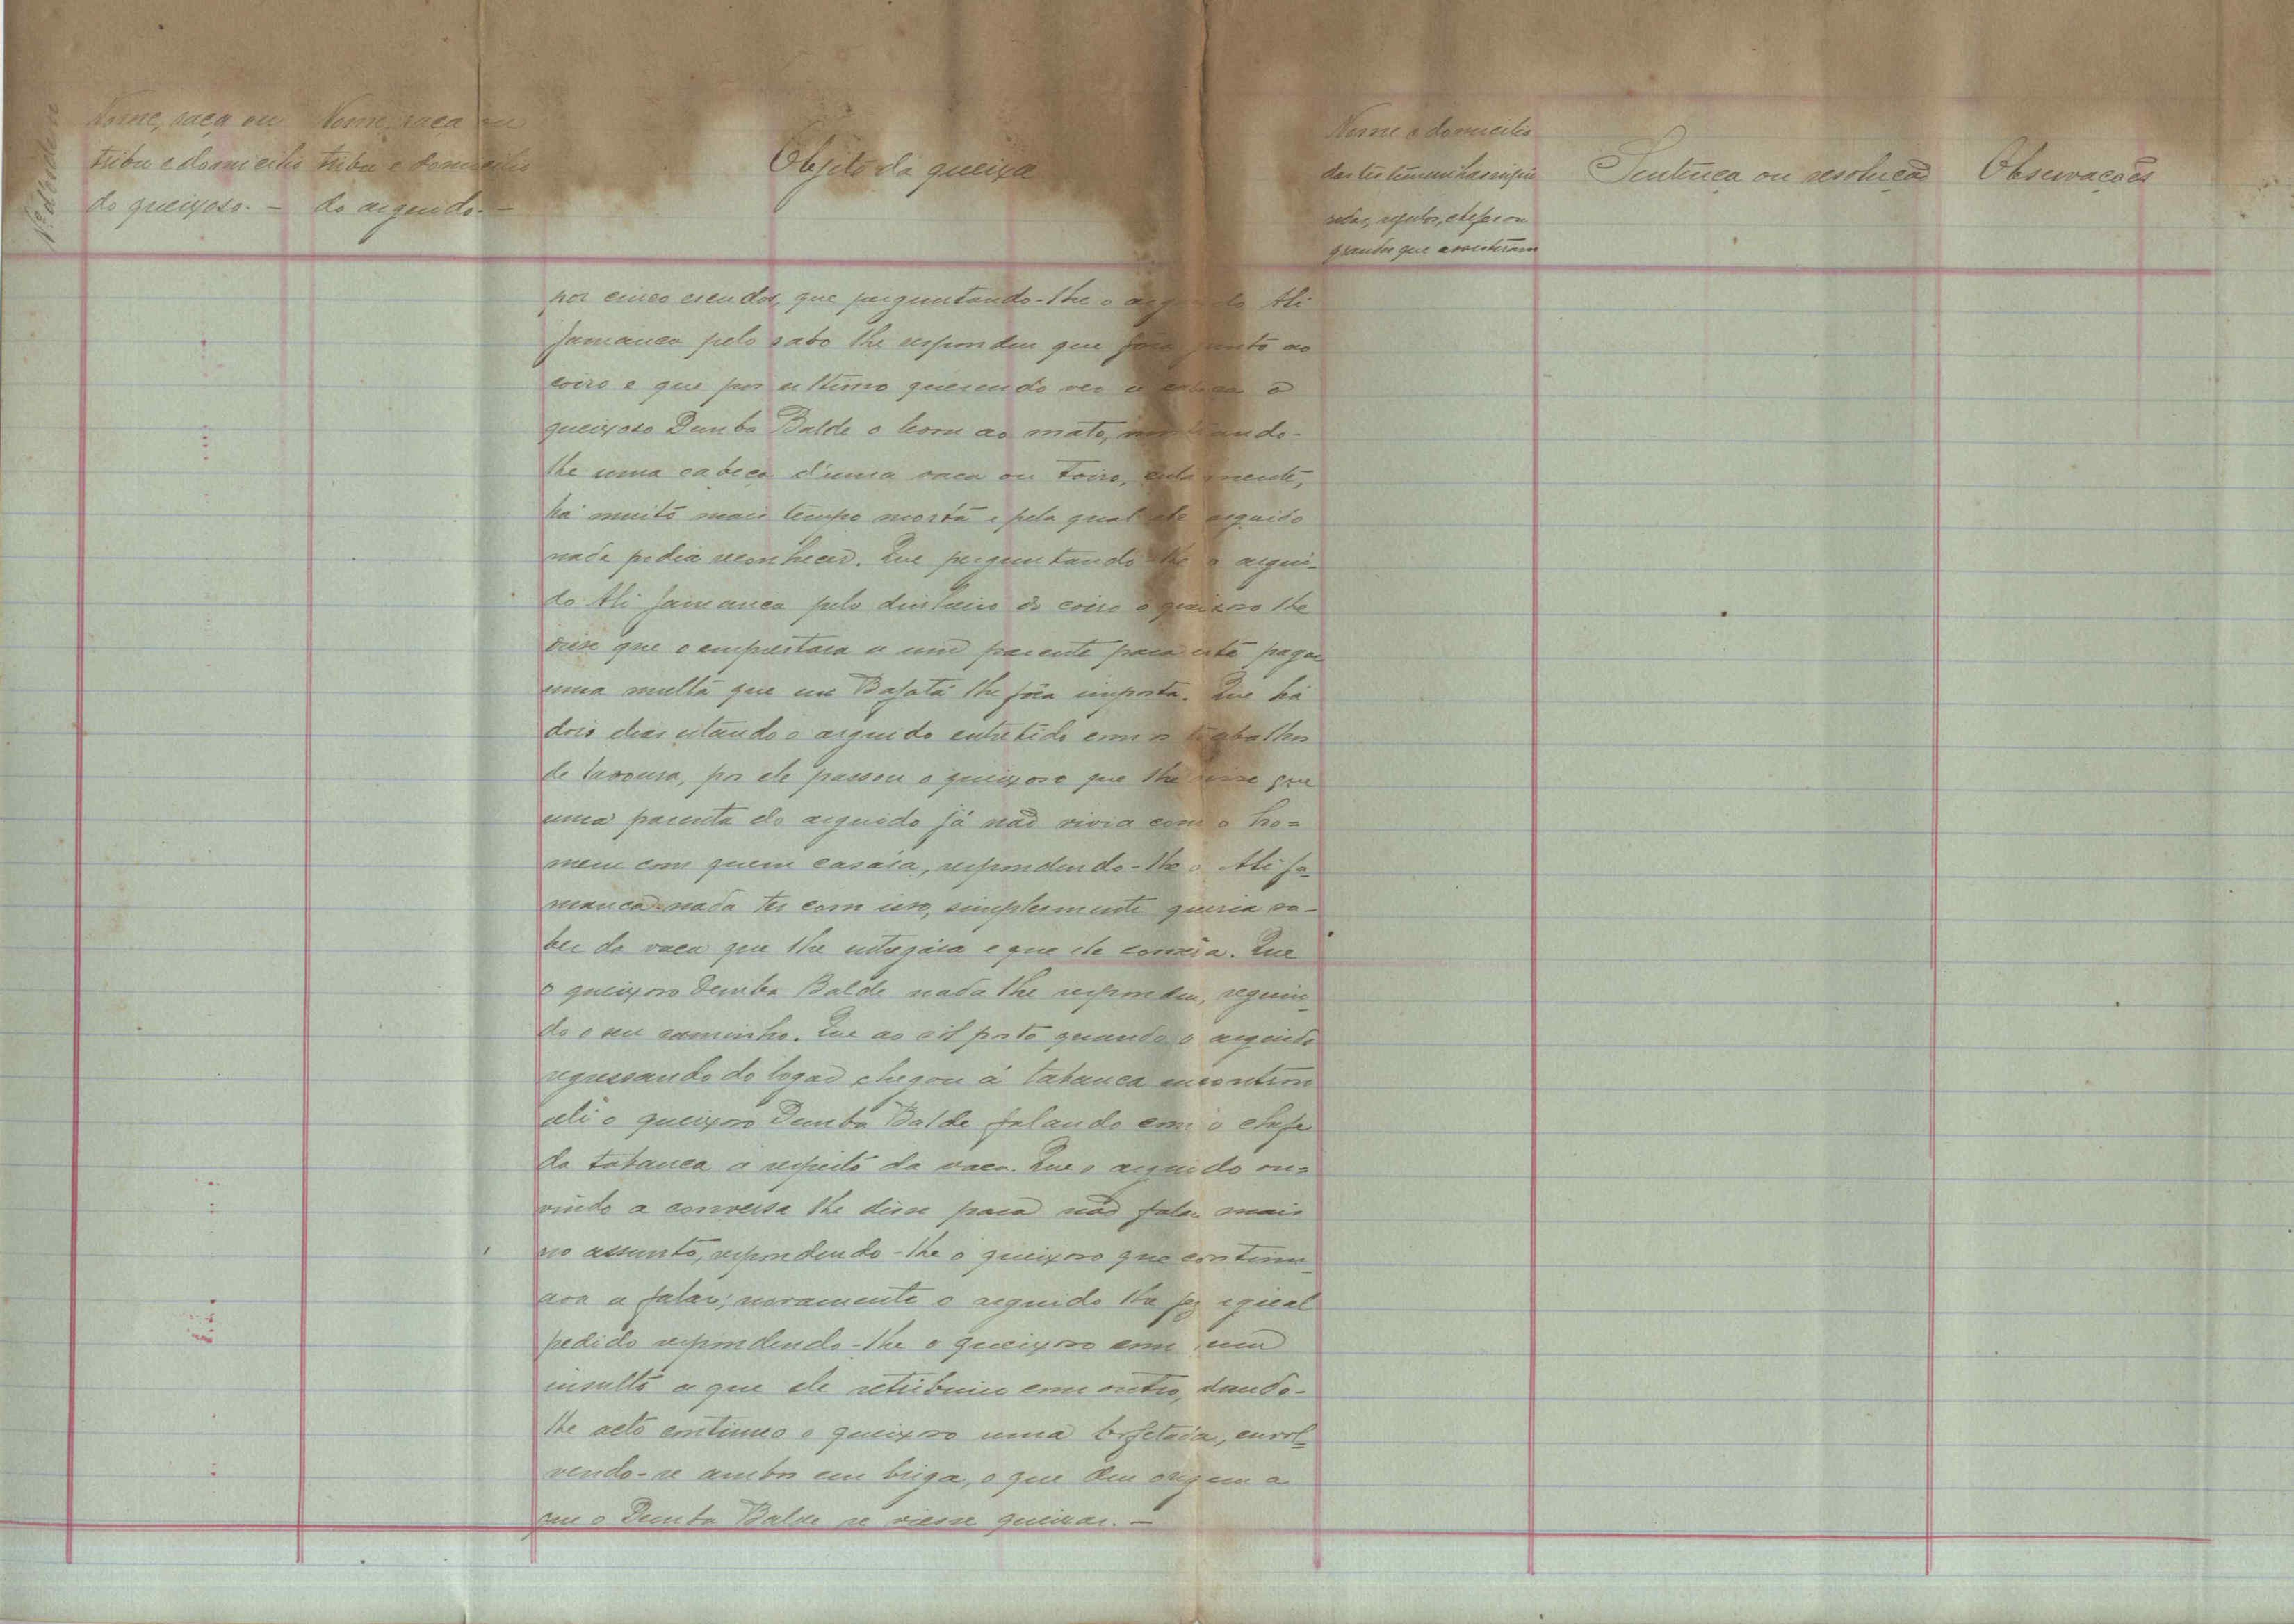 Nº d'ordem
Nome, raça ou
tribu e domicilio
do queixoso. -
Nome, raça ou
tribu e domicilio
do arguido. -
Objeto da queixa
Nome e domicilio
das testemunhas
regulos, chefes ou
grandes que assistiram
Sentença ou resolução
Observações
por cinco escudos, que perguntando-lhe o arguido Ali
Jamanca pelo sabo lhe respondeu que fôra junto ao
coiro e que por ultimo querendo ver a cabeça o
queixoso Demba Balde o levou ao mato, mostrando-
lhe uma cabeça d'uma vaca ou toiro, certamente,
há muito mais tempo morta e pela qual ele arguido
nada podia reconhecer. Que perguntando-lhe o argui-
do Ali Jamanca pelo dinheiro do coiro o queixoso lhe
disse que o emprestara a um parente para este pagar
uma multa que em Bafatá lhe fôra imposta. Que há
dois dias estando o arguido entretido com os trabalhos
de lavoura, por ele passou o queixoso que lhe disse que
uma parenta do arguido já não vivia com o ho=
mem com quem casára, respondendo-lhe o Ali Ja=
manca nada ter com isso, simplesmente queria sa-
ber da vaca que lhe entregára e que ele comêra. Que
o queixoso Demba Balde nada lhe respondeu, seguin=
do o seu caminho. Que ao sol posto quando o arguido
regressando do logar chegou á tabanca encontrou
ali o queixoso Demba Balde falando com o chefe
da tabanca a respeito da vaca. Que o arguido ou=
vindo a conversa lhe disse para não falar mais
no assunto, respondendo-lhe o queixoso que continu=
ava a falar; novamente o arguido lhe fez egual
pedido respondendo-lhe o queixoso com um
insulto a que ele retribuiu com outro, dando-
lhe acto continuo o queixoso uma bofetada, envol=
vendo-se ambos em briga, o que deu origem a
que o Demba Balde se viesse queixar. -